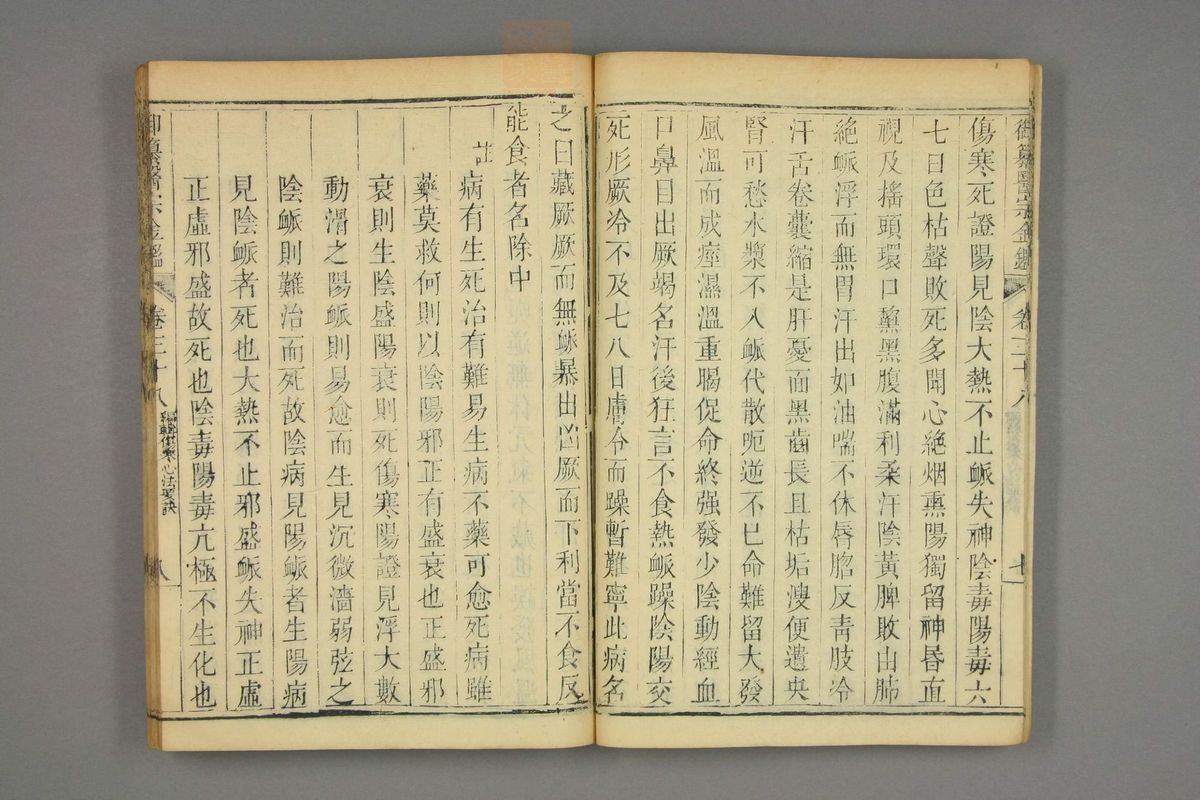 御纂醫宗金鑑 卷三十八 七
傷寒死證陽見陰大熱不止脈失神陰毒陽毒六
七日色枯聲敗死多聞心絕烟熏陽獨留神昏直
視及搖頭環口黧黑腹滿利柔汗陰黃脾敗由肺
絕脈浮而無胃汗出如油喘不休唇脗反青肢冷
汗舌卷囊縮是肝憂面黑齒長且枯垢溲便遺失
腎可愁水漿不入脈代散呃逆不已命難留大發
風溫而成痙濕溫重暍促命終强發少陰動經血
口鼻目出厥竭名汗後狂言不食熱脈躁陰陽交
死形厥冷不及七八日膚冷而躁暫難寧此病名
之曰藏厥厥而無脈暴出凶厥而下利當不食反
能食者名除中
註
病有生死治有難易生病不藥可愈死病雖
藥莫救何則以陰陽邪正有盛衰也正盛邪
衰則生陰盛陽衰則死傷寒陽證見浮大數
動滑之陽脈則易愈而生見沉微濇弱弦之
陰脈則難治而死故陰病見陽脈者生陽病
見陰脈者死也大熱不止邪盛脈失神正虛
正虛邪盛故死也陰毒陽毒亢極不生化也
御纂醫宗金鑑 卷三十八 編輯傷寒心法要訣 八